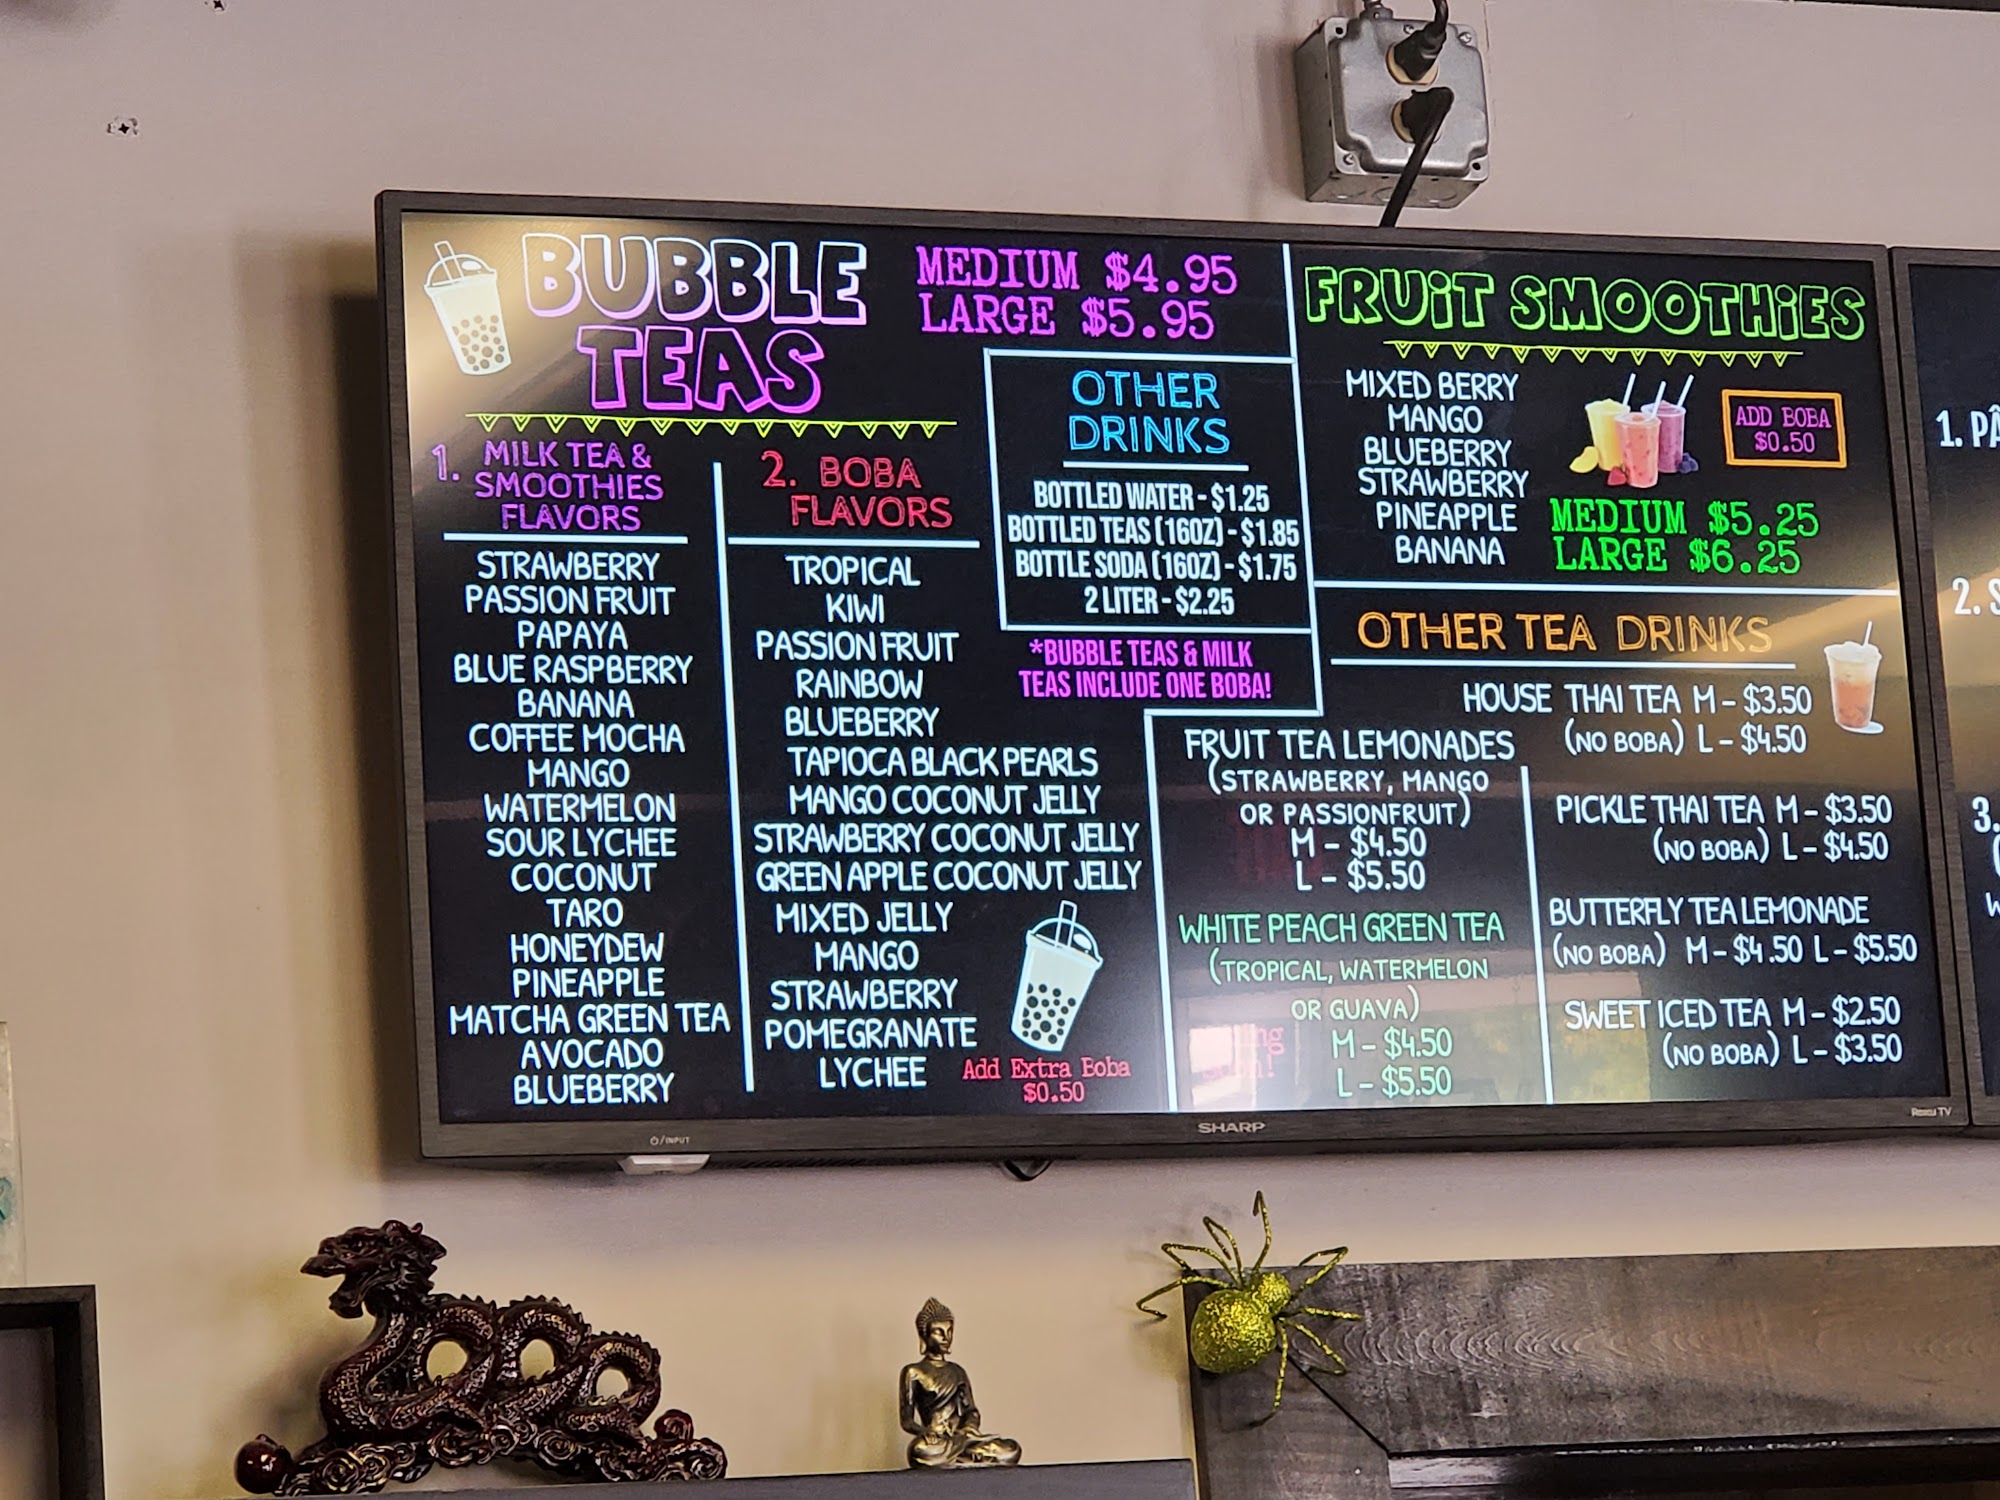 BUBBLE
TEAS
MEDIUM $4.95
LARGE $5.95
1. MILK TEA &
SMOOTHIES
FLAVORS
STRAWBERRY
PASSION FRUIT
PAPAYA
BLUE RASPBERRY
BANANA
COFFEE MOCHA
MANGO
WATERMELON
SOUR LYCHEE
COCONUT
TARO
HONEYDEW
PINEAPPLE
MATCHA GREEN TEA
AVOCADO
BLUEBERRY
2. BOBA
FLAVORS
TROPICAL
KIWI
PASSION FRUIT
RAINBOW
BLUEBERRY
TAPIOCA BLACK PEARLS
MANGO COCONUT JELLY
STRAWBERRY COCONUT JELLY
GREEN APPLE COCONUT JELLY
MIXED JELLY
MANGO
STRAWBERRY
POMEGRANATE
LYCHEE
Add Extra Boba
$0.50
OTHER
DRINKS
BOTTLED WATER - $1.25
BOTTLED TEAS (16OZ) - $1.85
BOTTLE SODA (16OZ) - $1.75
2 LITER - $2.25
*BUBBLE TEAS & MILK
TEAS INCLUDE ONE BOBA!
FRUiT SMOOTHiES
MIXED BERRY
MANGO
BLUEBERRY
STRAWBERRY
PINEAPPLE
BANANA
ADD BOBA
$0.50
MEDIUM $5.25
LARGE $6.25
OTHER TEA DRINKS
HOUSE THAI TEA M - $3.50
(NO BOBA) L - $4.50
FRUIT TEA LEMONADES
(STRAWBERRY, MANGO
OR PASSIONFRUIT)
M - $4.50
L - $5.50
WHITE PEACH GREEN TEA
(TROPICAL, WATERMELON
OR GUAVA)
M - $4.50
L - $5.50
PICKLE THAI TEA M - $3.50
(NO BOBA) L - $4.50
BUTTERFLY TEA LEMONADE
(NO BOBA) M - $4.50 L - $5.50
SWEET ICED TEA M - $2.50
(NO BOBA) L - $3.50
/INPUT
SHARP
Roku TV
1. PÂ
2. S
3.